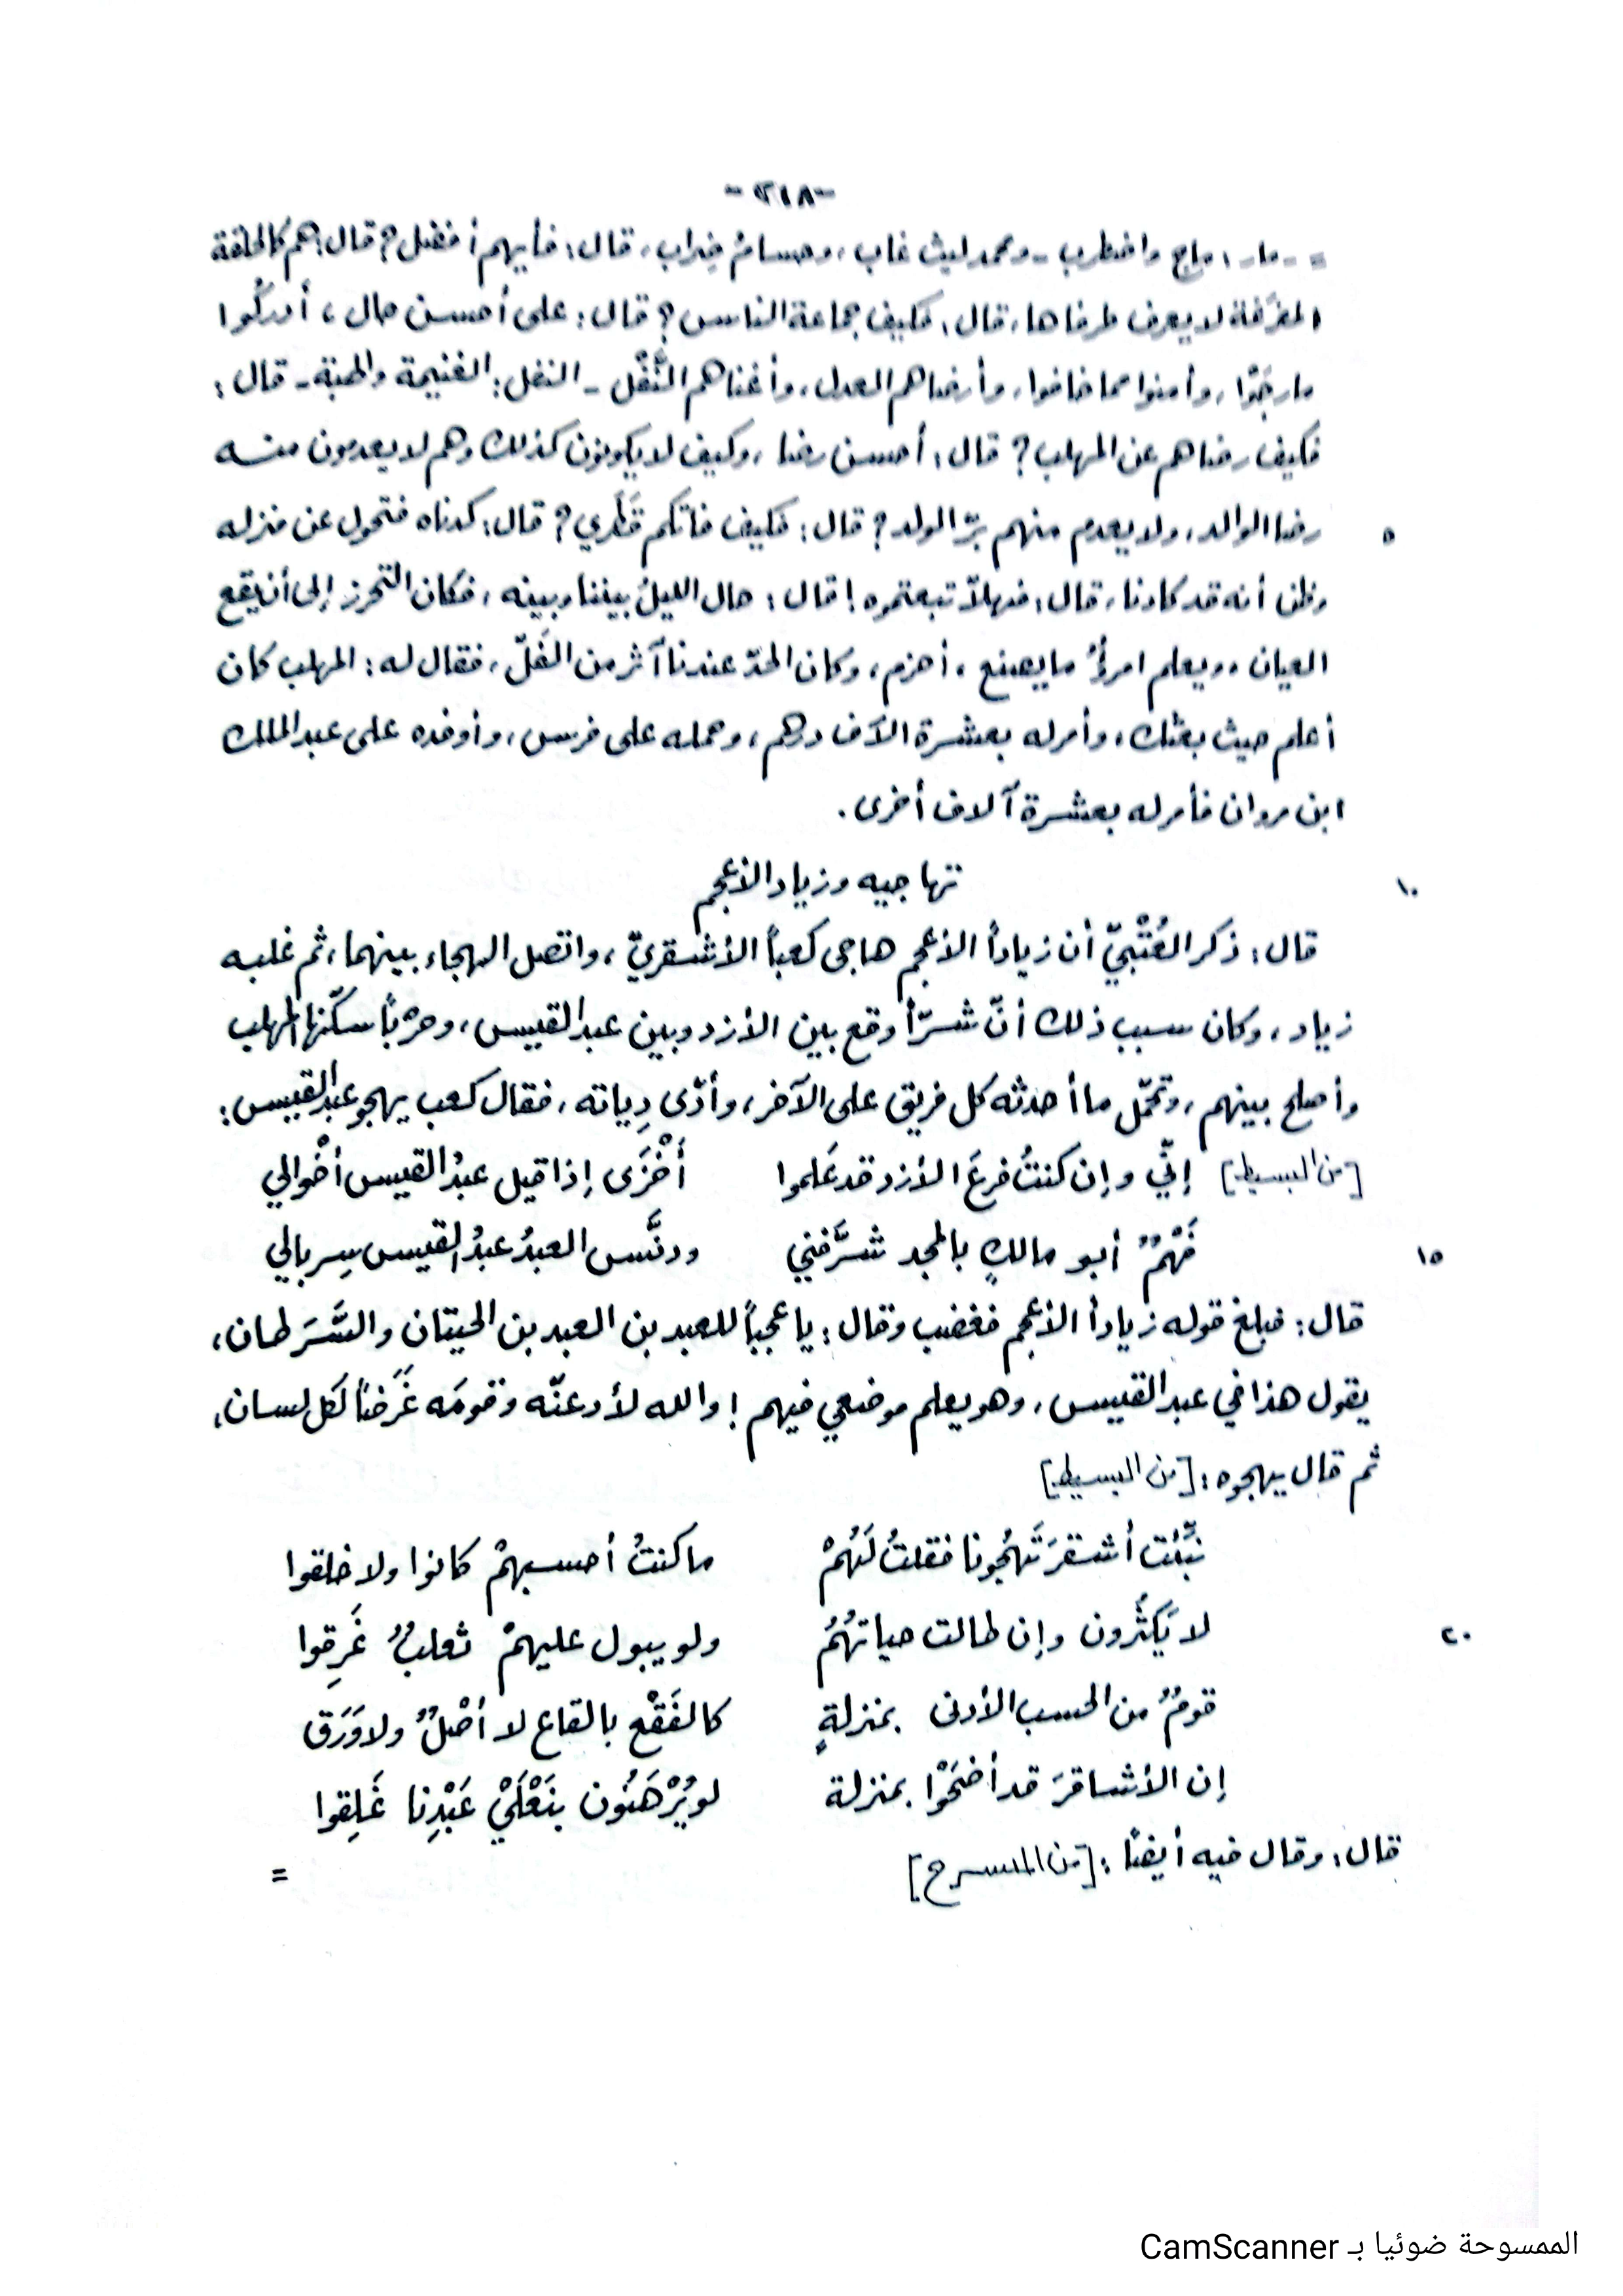 -٢١٨-
= - مار: ماج واضطرب - ومحمد ليث غاب، وحسامُ ضِراب، قال: فأيهم أفضل؟ قال: هم كالحلقة
المفرَّغة لا يعرف طرفاها، قال: فكيف جماعة الناس؟ قال: على أحسن حال، أدركُوا
ما رجَوْا، وأمنوا مما خافوا، وأرضاهم العدل، وأغناهم النَّفْل - النفل: الغنيمة والهبة - قال:
فكيف رضاهم عن المهلب؟ قال: أحسن رضا، وكيف لا يكونون كذلك وهم لا يعدمون منه
٥ رضا الوالد، ولا يعدم منهم برّ الولد؟ قال: فكيف فاتكم قَطَري؟ قال: كدناه فتحول عن منزله
وظن أنه قد كادنا، قال: فهلاّ تبعتموه! قال: حال الليلُ بيننا وبينه، فكان التحرز إلى أن يقع
العيان، ويعلم امرؤٌ ما يصنع، أحزم، وكان الحدّ عندنا آثر من الفَلّ، فقال له: المهلب كان
أعلم حيث بعثك، وأمر له بعشرة آلاف درهم، وحمله على فرس، وأوفده على عبد الملك
ابن مروان فأمر له بعشرة آلاف أخرى.
١٠ تهاجيه وزياد الأعجم
قال: ذكر العُتْبيّ أن زياداً الأعجم هاجى كعباً الأشقريّ، واتصل الهجاء بينهما، ثم غلبه
زياد، وكان سبب ذلك أنّ شرّاً وقع بين الأزد وبين عبد القيس، وحرْباً سكّنها المهلب
وأصلح بينهم، وتحمّل ما أحدثه كل فريق على الآخر، وأدّى دِياته، فقال كعب يهجو عبد القيس:
[من البسيط] إنّي وإن كنتُ فرعَ الأزد قد عَلموا أَخْزَى إذا قيل عبدُ القيس أخْوالي
١٥ فَهْمٌ أبو مالكٍ بالمجد شرَّفني ودنَّس العبدُ عبدُ القيس سِربالي
قال: فبلغ قوله زياداً الأعجم فغضب وقال: يا عجباً للعبد بن العبد بن الحيتان والسَّرَطان،
يقول هذا في عبد القيس، وهو يعلم موضعي فيهم! والله لأدعنّه وقومَه غَرَضاً لكل لسان،
ثم قال يهجوه: [من البسيط]
نبِّئت أشقرَ تَهْجُونا فقلتُ لَهُمْ ما كنتُ أحسبهمْ كانوا ولا خلقوا
٢٠ لا يَكثُرون وإن طالت حياتهُمُ ولو يبول عليهمْ ثعلبٌ غَرِقوا
قومٌ من الحسب الأدنى بمنزلةٍ كالفَقْع بالقاع لا أصْلٌ ولا وَرَق
إن الأشاقرَ قد أضحَوْا بمنزلة لو يُرْهَنُون بنَعْلَيْ عَبْدِنا غَلِقوا
قال: وقال فيه أيضاً: [من المنسرح] =
الممسوحة ضوئيا بـ CamScanner